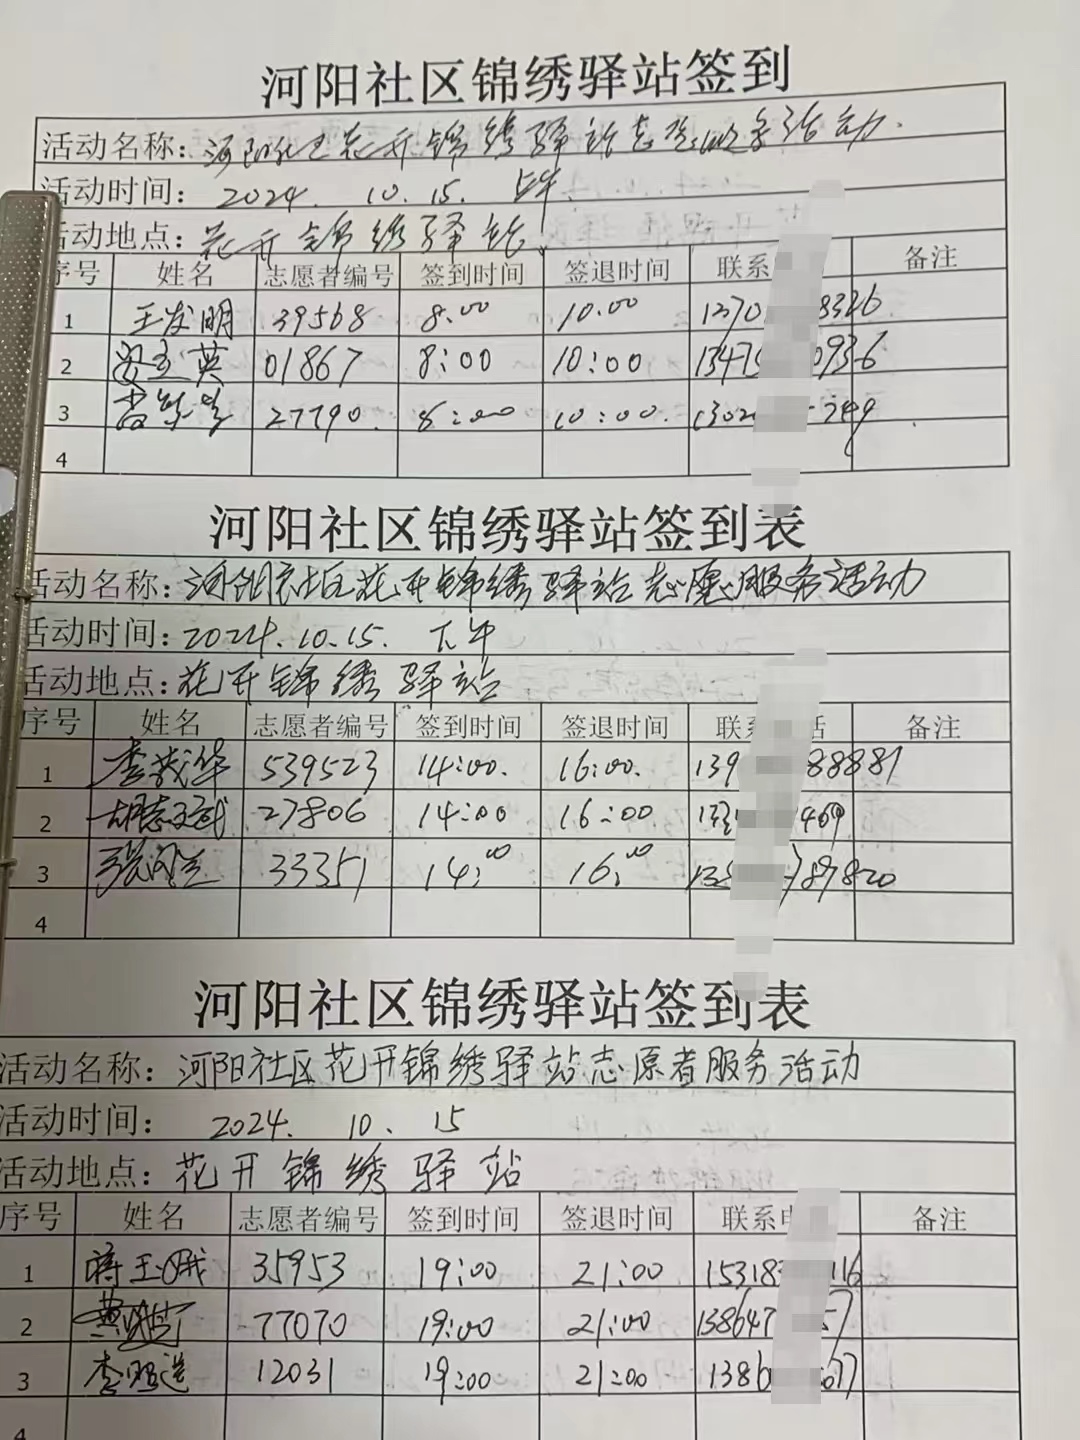 河阳社区锦绣驿站签到
活动名称：河阳社区花开锦绣驿站志愿服务活动.
活动时间：2024. 10. 15. 上午
活动地点：花开锦绣驿站
序号 姓名 志愿者编号 签到时间 签退时间 联系 备注
1 王发明 39568 8:00 10:00 8326
2 英 01867 8:00 10:00 0936
3 27790. 8:00 10:00. 749
4
河阳社区锦绣驿站签到表
活动名称：河阳社区花开锦绣驿站志愿服务活动
活动时间：2024.10.15. 下午
活动地点：花开锦绣驿站
序号 姓名 志愿者编号 签到时间 签退时间 联系 话 备注
1 李 华 539523 14:00. 16:00. 139 88881
2 胡志武 27806 14:00 16:00 469
3 张 兰 33351 14:00 16:00 87820
4
河阳社区锦绣驿站签到表
活动名称：河阳社区花开锦绣驿站志愿者服务活动
活动时间：2024. 10. 15
活动地点：花开锦绣驿站
序号 姓名 志愿者编号 签到时间 签退时间 联系电 备注
1 蒋玉娥 35953 19:00 21:00 15318 116
2 黄 77070 19:00 21:00 138647 57
3 李 选 12031 19:00 21:00 138 677
4